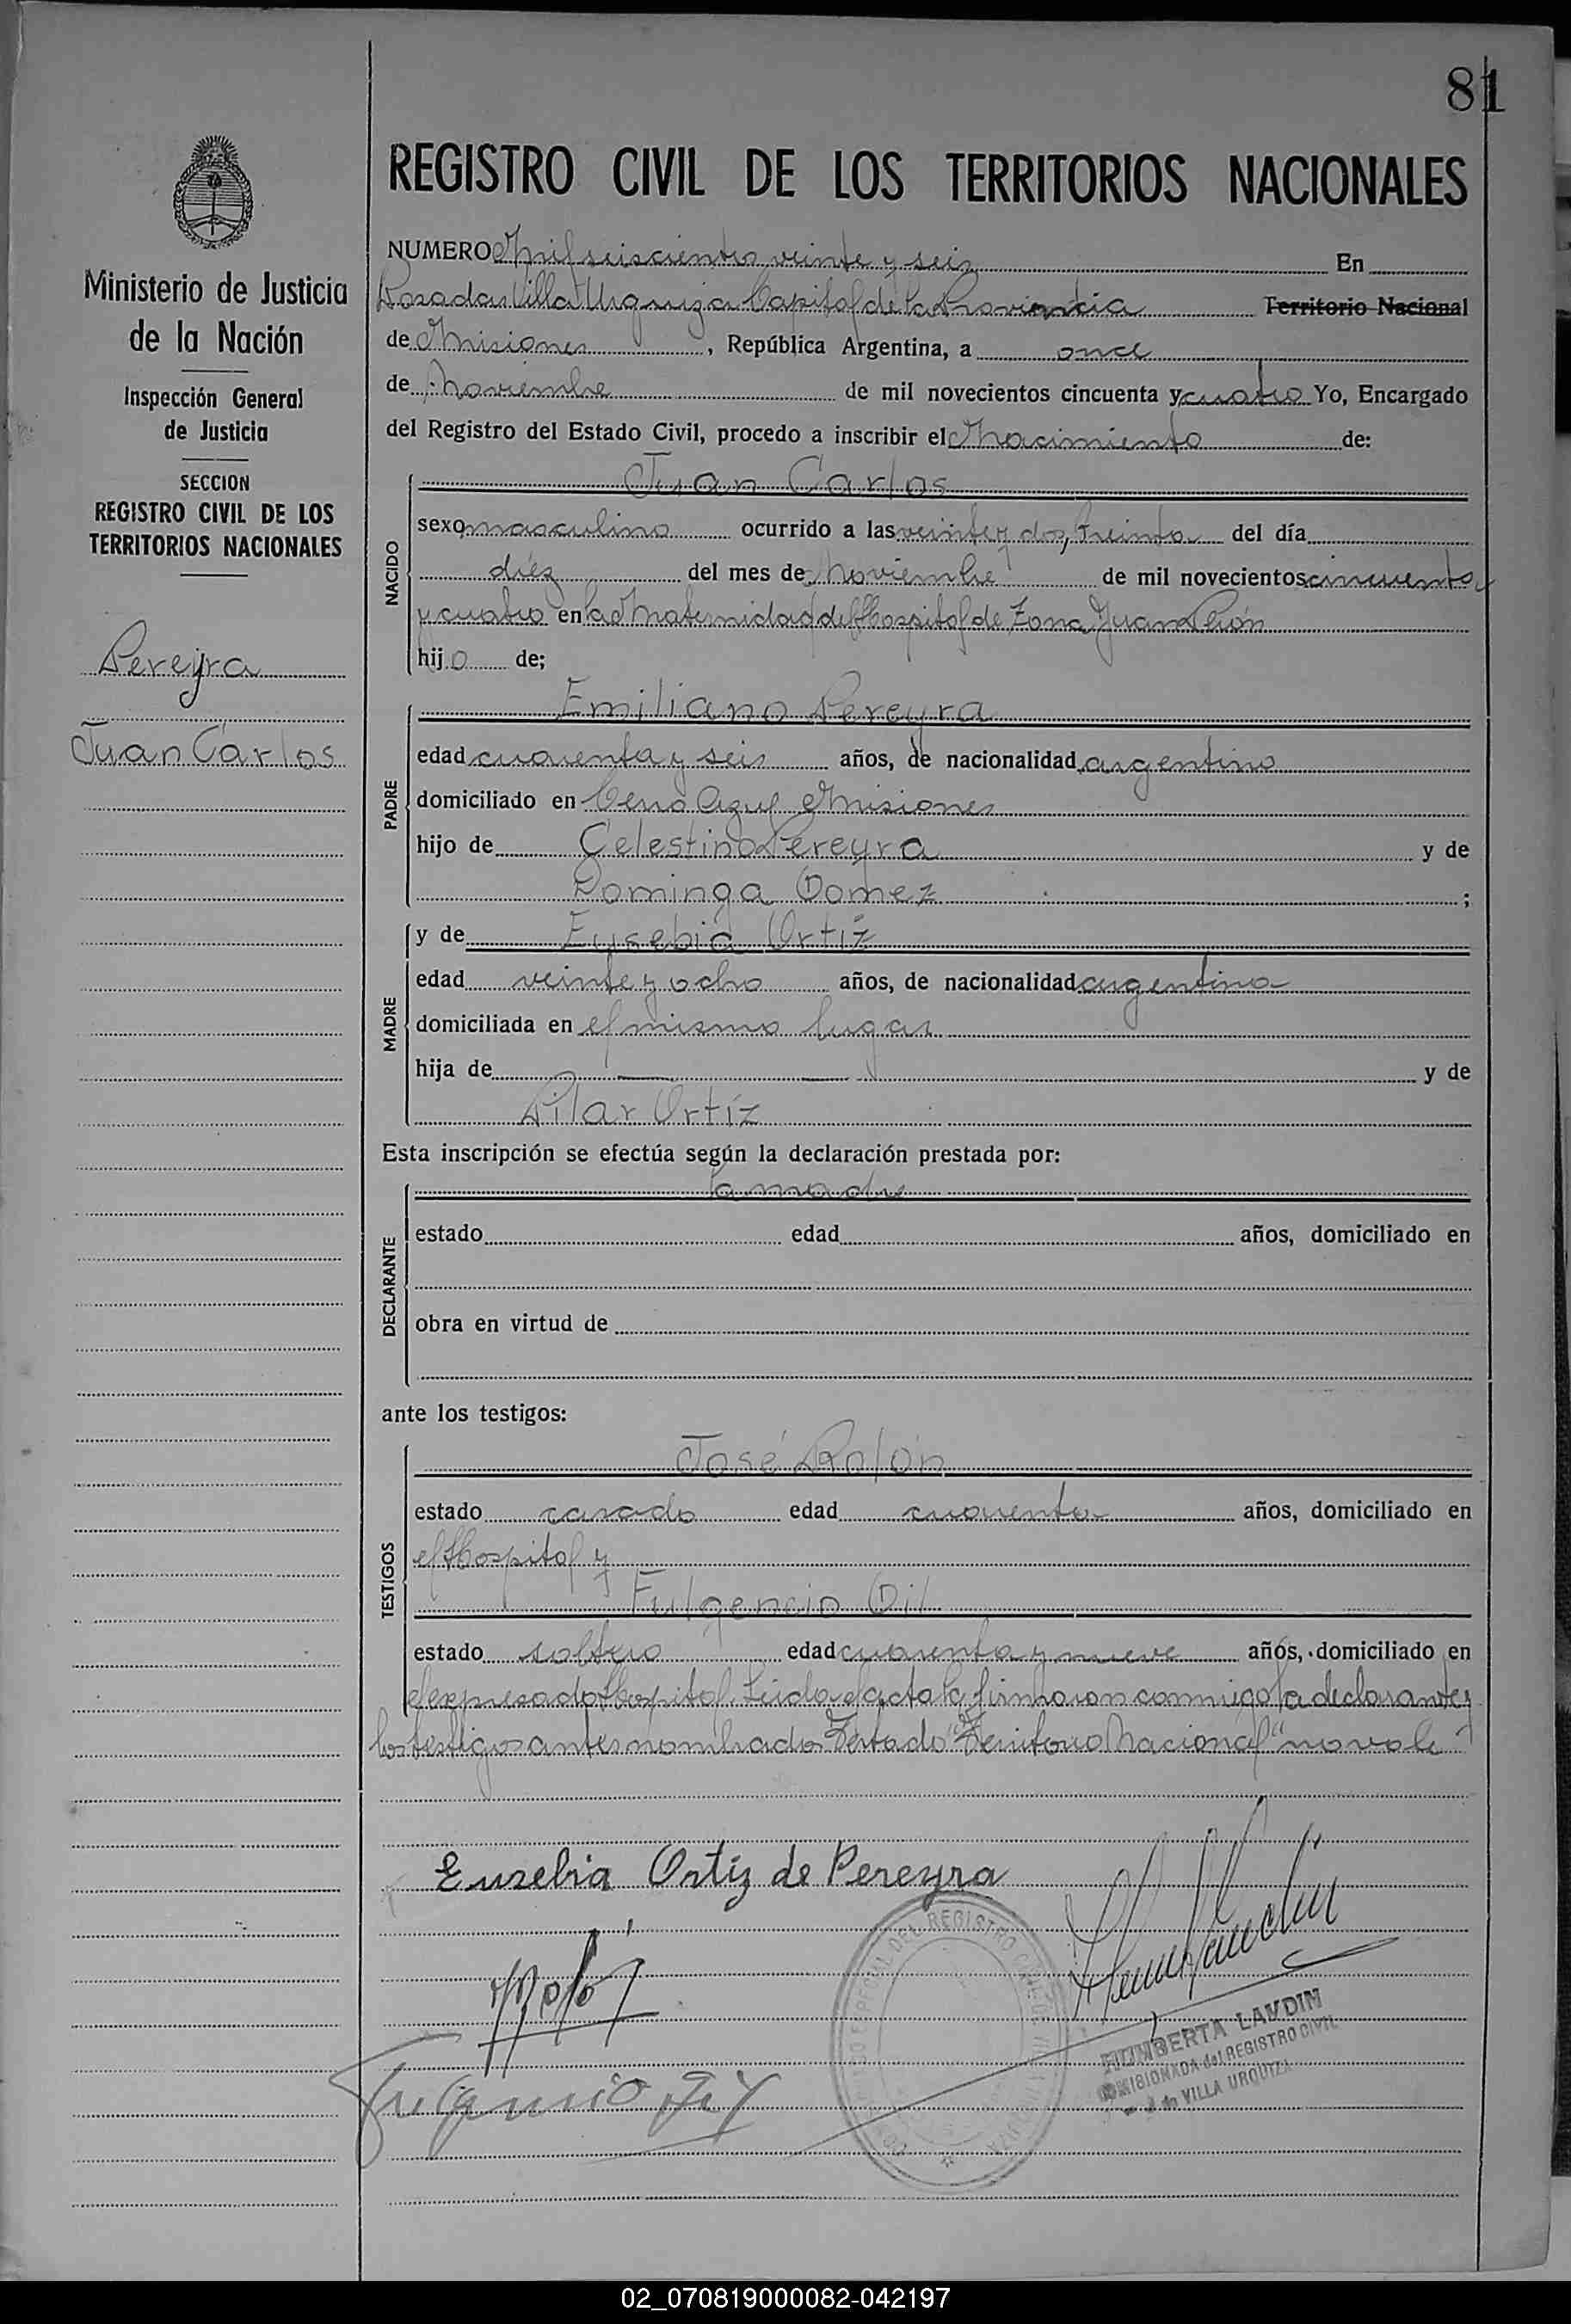 81
REGISTRO CIVIL DE LOS TERRITORIOS NACIONALES
Ministerio de Justicia
de la Nación
Inspección General
de Justicia
SECCION
REGISTRO CIVIL DE LOS
TERRITORIOS NACIONALES
Pereyra
Juan Carlos
NUMERO Mil seiscientos veinte y seis En
Posadas Villa Urquiza Capital de la Provincia Territorio Nacional
de Misiones, República Argentina, a once
de Noviembre de mil novecientos cincuenta y cuatro Yo, Encargado
del Registro del Estado Civil, procedo a inscribir el Nacimiento de:
NACIDO
Juan Carlos
sexo masculino ocurrido a las veinte y dos, treinta del día
diéz del mes de Noviembre de mil novecientos cincuenta
y cuatro en la Maternidad del Hospital de Zona Juan Perón
hijo de;
PADRE
Emiliano Pereyra
edad cuarenta y seis años, de nacionalidad argentino
domiciliado en Cerro Azul Misiones
hijo de Celestino Pereyra y de
Dominga Gomez ;
MADRE
y de Eusebia Ortíz
edad veinte y ocho años, de nacionalidad argentina
domiciliada en el mismo lugar
hija de y de
Pilar Ortíz
Esta inscripción se efectúa según la declaración prestada por:
DECLARANTE
la madre
estado edad años, domiciliado en
obra en virtud de
ante los testigos:
TESTIGOS
José Rolón
estado casado edad cuarenta años, domiciliado en
el Hospital y
Fulgencio Gil
estado soltero edad cuarenta y nueve años, domiciliado en
el expresado Hospital. Leida el acta la firmaron conmigo la declarante y
los testigos antes nombrados Testado "Territorio Nacional" no vale
Eusebia Ortiz de Pereyra
Fulgencio Gil
HUMBERTA LANDIM
COMISIONADA del REGISTRO CIVIL
de VILLA URQUIZA
02_070819000082-042197